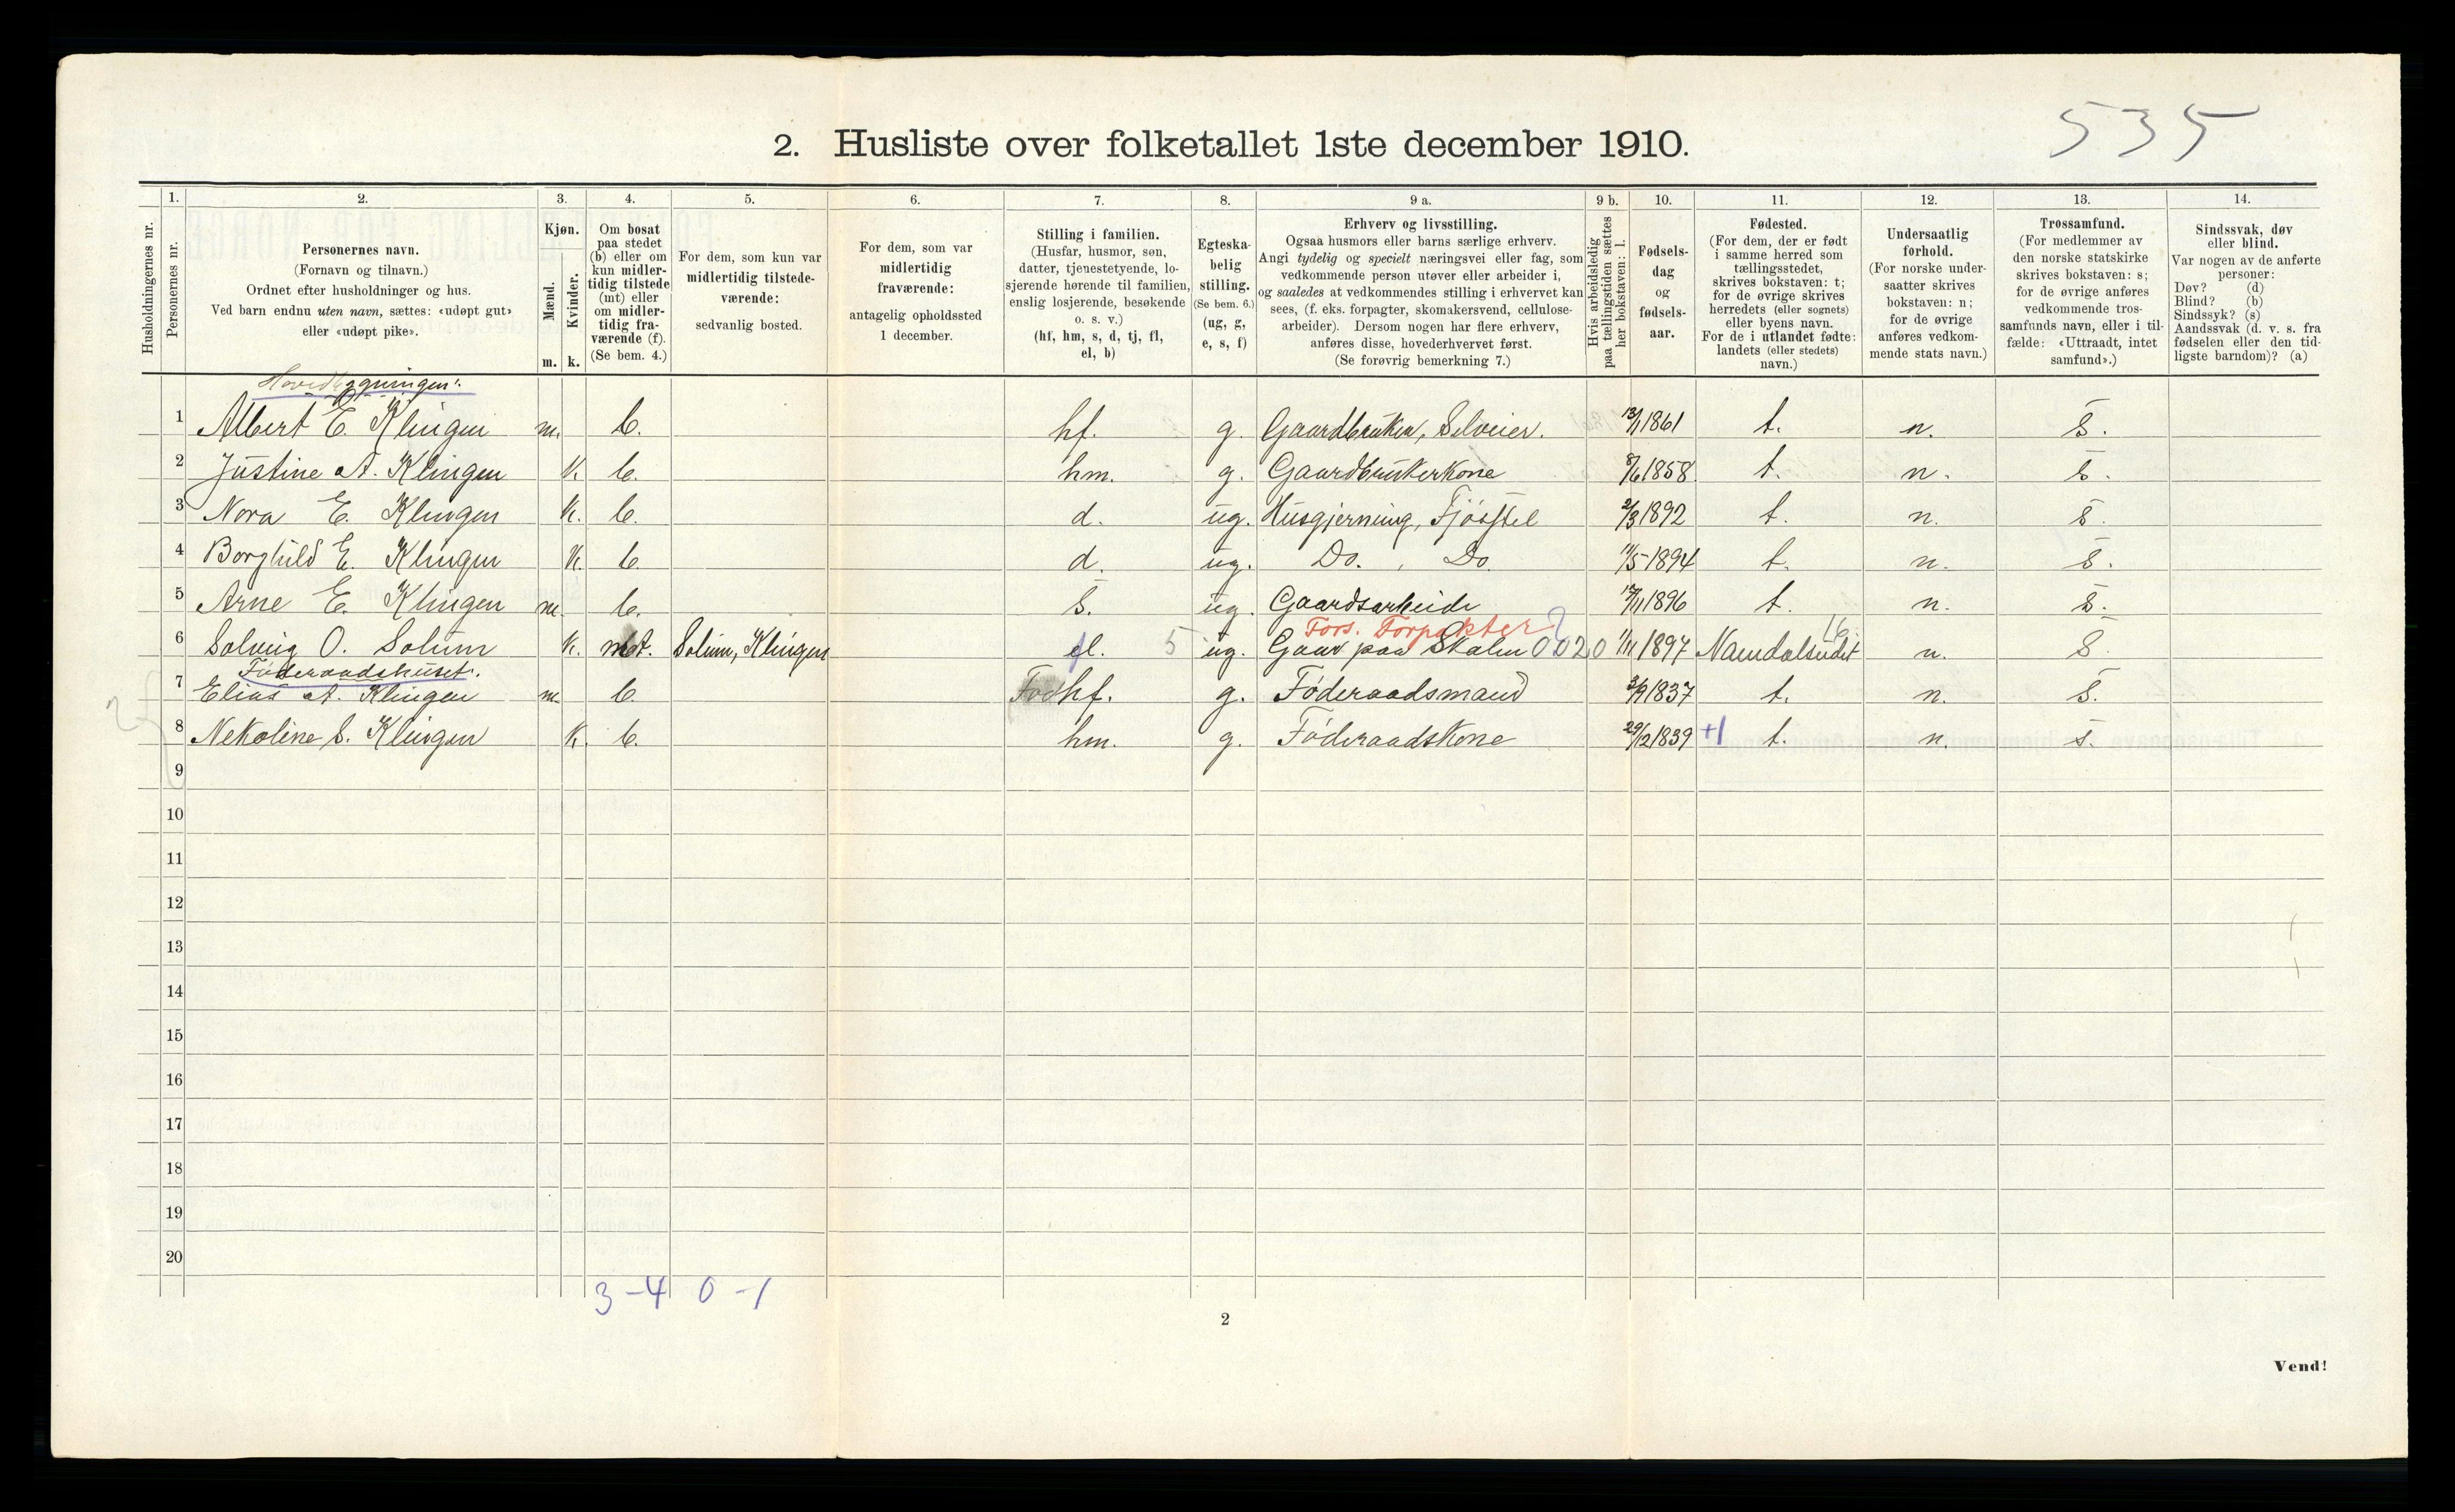 535
2. Husliste over folketallet 1ste december 1910.
Husholdningernes nr.
1. Personernes nr.
2. Personernes navn. (Fornavn og tilnavn.) Ordnet efter husholdninger og hus. Ved barn endnu uten navn, sættes: «udøpt gut» eller «udøpt pike».
3. Kjøn. Mænd. m. Kvinder. k.
4. Om bosat paa stedet (b) eller om kun midlertidig tilstede (mt) eller om midlertidig fraværende (f). (Se bem. 4.)
5. For dem, som kun var midlertidig tilstedeværende: sedvanlig bosted.
6. For dem, som var midlertidig fraværende: antagelig opholdssted 1 december.
7. Stilling i familien. (Husfar, husmor, søn, datter, tjenestetyende, losjerende hørende til familien, enslig losjerende, besøkende o. s. v.) (hf, hm, s, d, tj, fl, el, b)
8. Egteskabelig stilling. (Se bem. 6.) (ug, g, e, s, f)
9 a. Erhverv og livsstilling. Ogsaa husmors eller barns særlige erhverv. Angi tydelig og specielt næringsvei eller fag, som vedkommende person utøver eller arbeider i, og saaledes at vedkommendes stilling i erhvervet kan sees, (f. eks. forpagter, skomakersvend, cellulosearbeider). Dersom nogen har flere erhverv, anføres disse, hovederhvervet først. (Se forøvrig bemerkning 7.)
9 b. Hvis arbeidsledig paa tællingstiden sættes her bokstaven: l.
10. Fødselsdag og fødselsaar.
11. Fødested. (For dem, der er født i samme herred som tællingsstedet, skrives bokstaven: t; for de øvrige skrives herredets (eller sognets) eller byens navn. For de i utlandet fødte: landets (eller stedets) navn.)
12. Undersaatlig forhold. (For norske undersaatter skrives bokstaven: n; for de øvrige anføres vedkommende stats navn.)
13. Trossamfund. (For medlemmer av den norske statskirke skrives bokstaven: s; for de øvrige anføres vedkommende trossamfunds navn, eller i tilfælde: «Uttraadt, intet samfund».)
14. Sindssvak, døv eller blind. Var nogen av de anførte personer: Døv? (d) Blind? (b) Sindssyk? (s) Aandssvak (d. v. s. fra fødselen eller den tidligste barndom)? (a)
Hovedbygningen:
1 Albert E. Klingen m. b. hf. g. Gaardbruker, Selveier. 13/1 1861 t. n. s.
2 Justine A. Klingen k. b. hm. g. Gaardbrukerkone 8/6 1858 t. n. s.
3 Nora E. Klingen k. b. d. ug. Husgjerning, Fjøsstel 2/3 1892 t. n. s.
4 Borghild E. Klingen k. b. d. ug. Do. , Do. 11/5 1894 t. n. s.
5 Arne E. Klingen m. b. s. ug. Gaardsarbeide 1896 t. n. s.
Fors. Forpakter 16
6 Solveig O. Solum k. mt. Solum, Klingen el. 5 ug. Gaar paa Skolen 0020 1/11 1897 Namdalseidet n. s.
Føderaadshuset.
7 Elias A. Klingen m. b. hf. g. Føderaadsmand 3/9 1837 t. n. s.
8 Nekoline S. Klingen k. b. hm. g. Føderaadskone 29/12 1839 +1 t. n. s.
9
10
11
12
13
14
15
16
17
18
19
20
3-4 0-1
2
Vend!